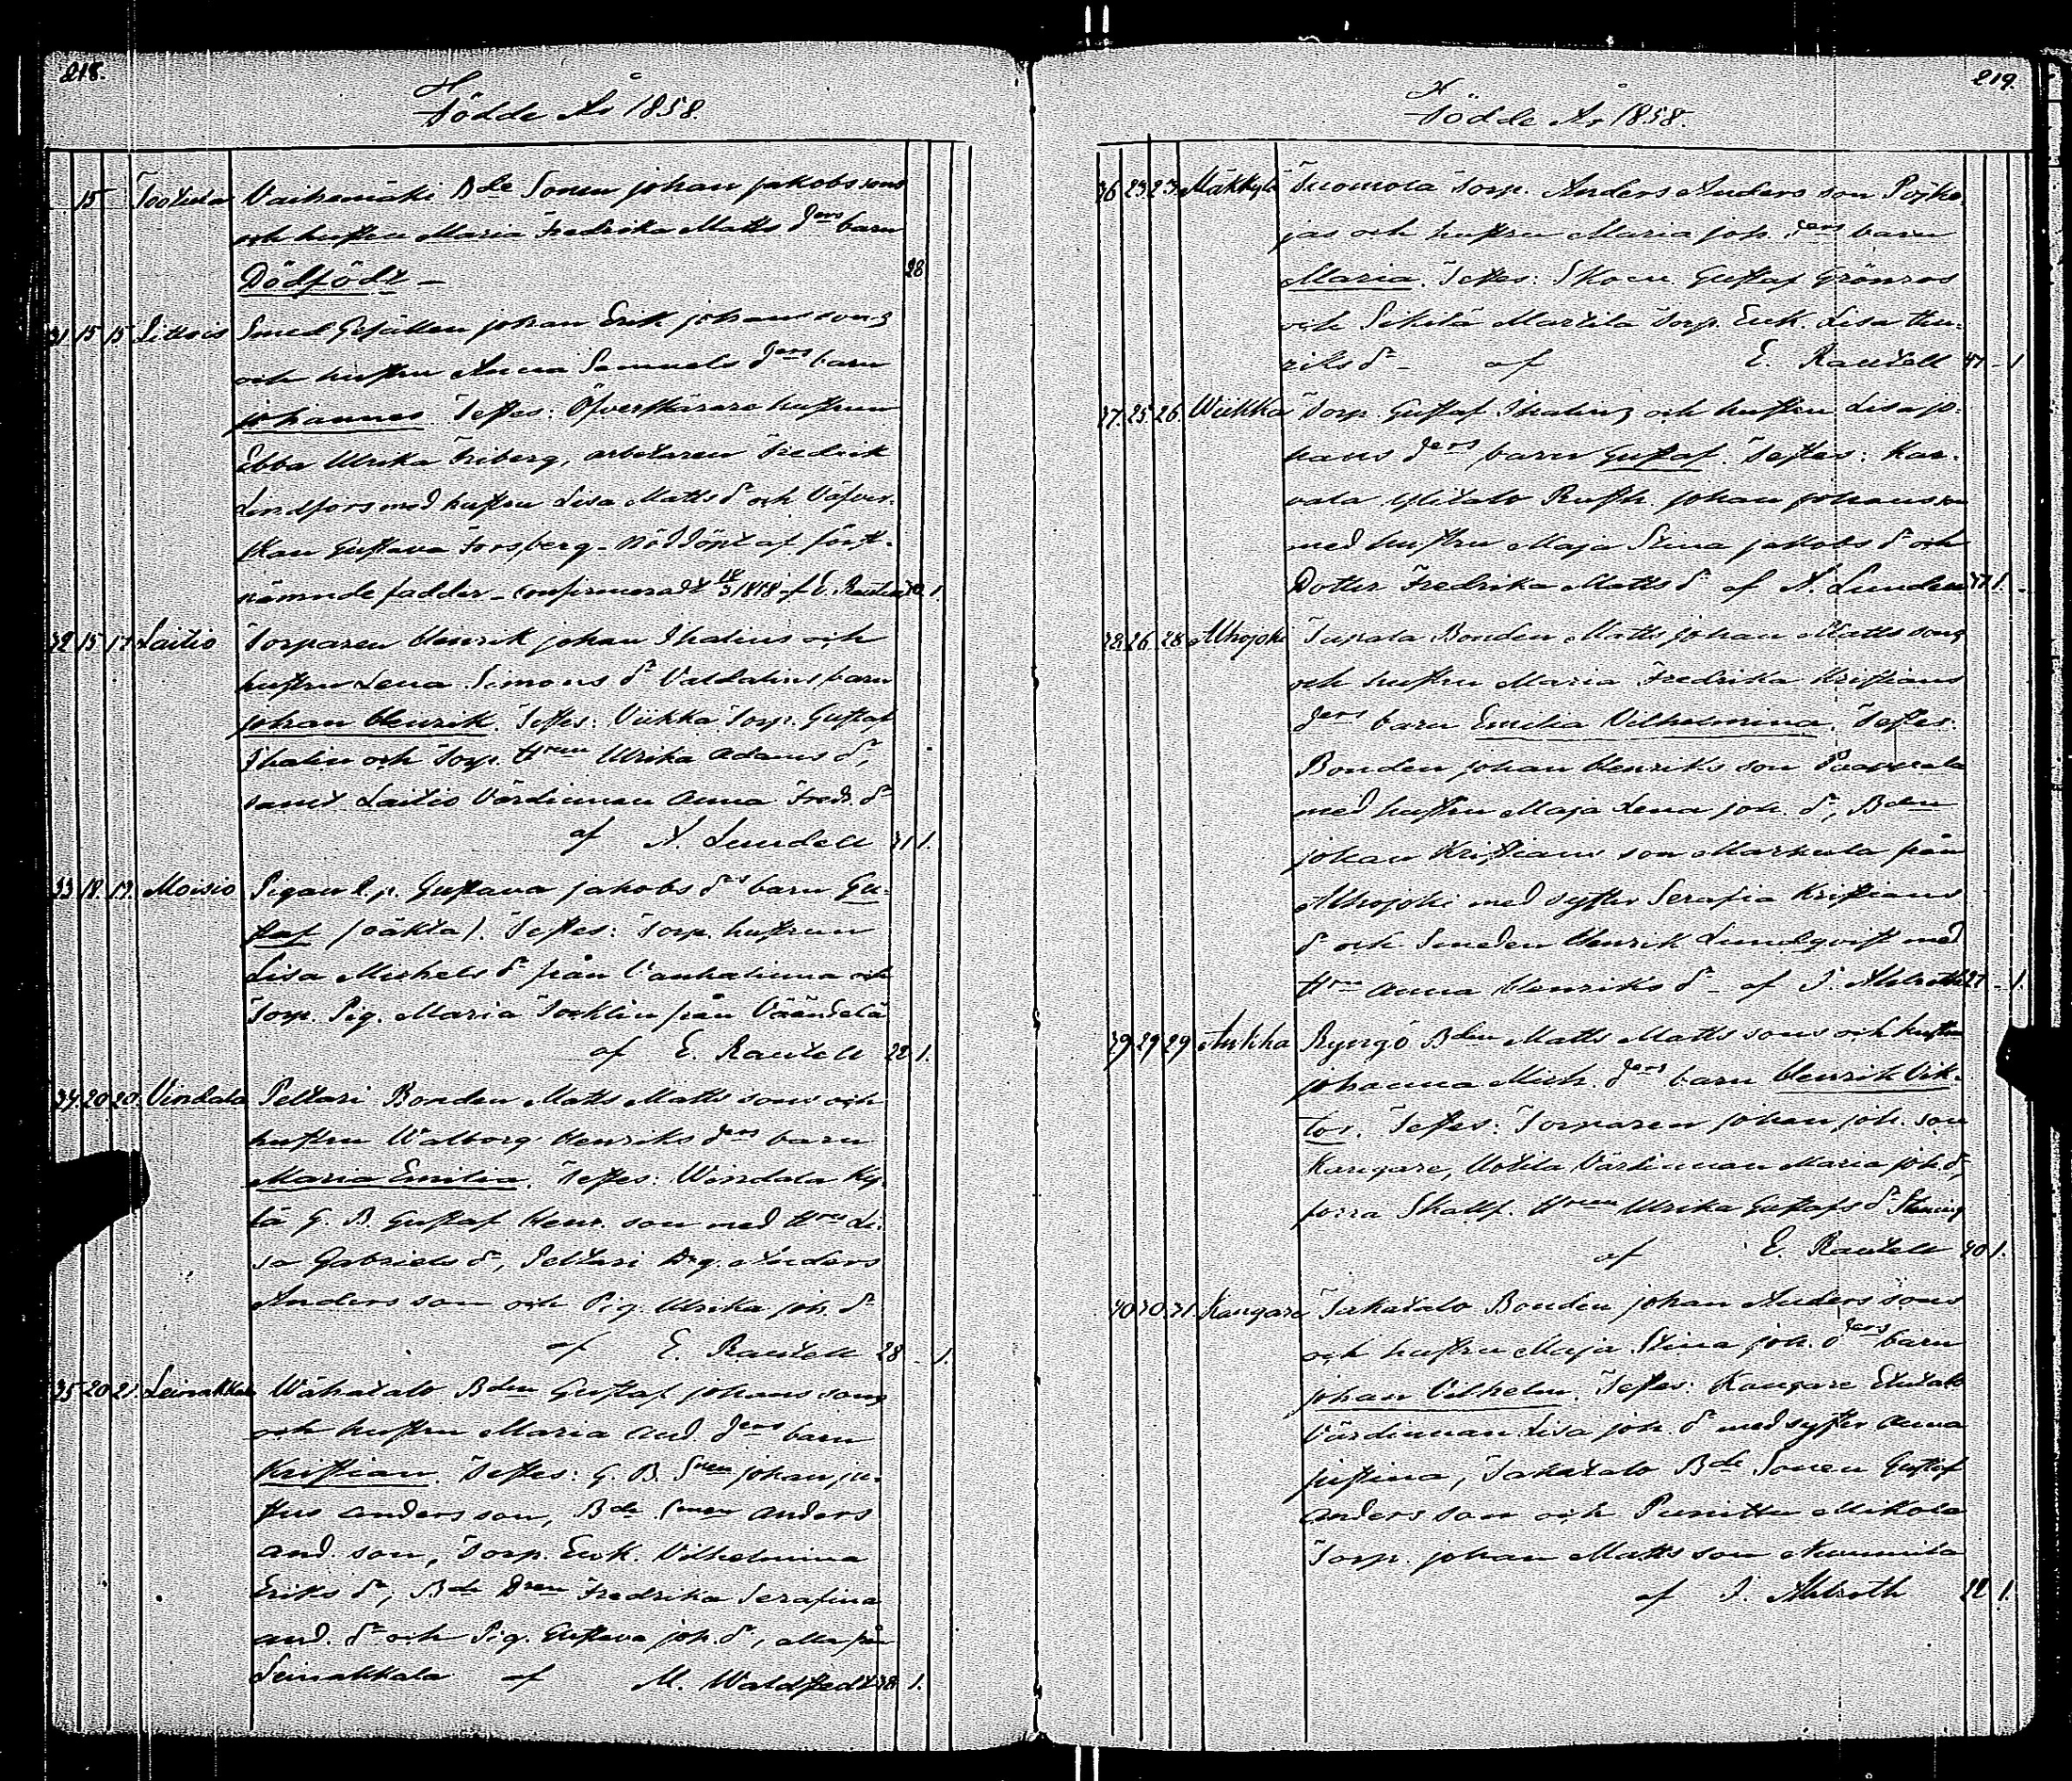 218.
Födde År 1858.
15 Tootula Vaihemäki Bde Sonen Johan Jakobssons
och hustru Maria Fredrika Matts ders barn
Dödfödt — 28
31 15 15 Littois Smed Gesällen Johan Erik Johanssons
och hustru Anna Samuels ders barn
Johannes. Testes: Öfverskärare hustrun
Ebba Ulrika Friberg, arbetaren Fredrik
Lindfors med hustru Lisa Matts dr och Väfver-
skan Gustava Forsberg - nöddöpt af först-
nämnde fadder - confirmeradt af E. Rautell 1.
32 15 17 Laitio Torparen Henrik Johan Thalins och
hustru Lena Simons dr Valdalins barn
Johan Henrik. Testes: Viikka Torp. Gustaf
Thalin och Torp. Hrun Ulrika Adams dr,
samt Laitio Värdinnan Anna Fredr. dr
af A. Lundell 31 1.
33 18. 19. Moisio Pigan l. p. Gustava Jakobs drs barn Gu-
staf (oäkta). Testes: Torp. hustrun
Lisa Michels dr från Vanhalinna och
Torp. Pig. Maria Tocklin från Vääntelä
af E. Rautell 22 1.
34 20 20. Vindala Peltari Bonden Matts Matts sons och
hustru Walborg Henriks ders barn
Maria Emilia. Testes: Windala Ky-
lä G. B. Gustaf Henr. son med Hru Li-
sa Gabriels dr, Peltari Dg. Anders
Anders son och Pig. Ulrika Joh. dr
af E. Rautell 28 1.
35 20 21. Leinakkala Wähätalo Bden Gustaf Johans sons
och hustru Maria And. ders barn
Kristian. Testes: G. B. Snen Johan Ju-
stus Anders son, Bde Snen Anders
And. son, Torp. Enk. Vilhelmina
Eriks dr, Bde Dren Fredrika Serafina
And. dr och Pig. Gustava Joh. dr, alla från
Leinakkala af M. Waldstedt 38 1.
219.
Födde År 1858.
36 23 23 Mäkkylä Tuomola Torp. Anders Anders son Pojke-
jas och hustru Maria Joh. ders barn
Maria. Testes: Skom. Gustaf Grönroos
och Sikilä Martila Torp. Enk. Lisa Hen-
riks dr - af E. Rautell 1
37. 25. 26. Wiikka Torp. Gustaf Thalins och hustru Lisa Jo-
hans ders barn Gustaf. Testes: Kar-
vala Ylitalo Rusth. Johan Johansson
med hustru Maja Stina Jakobs dr och
Dotter Fredrika Matts dr af A. Lundell 1.
38. 26. 28 Alhojoki Tupala Bonden Matts Johan Matts sons
och hustru Maria Fredrika Kristians
ders barn Emilia Vilhelmina. Testes:
Bonden Johan Henriks son Paavola
med hustru Maja Lena Joh. dr, Bden
Johan Kristians son Markula från
Alhojoki med syster Serafia Kristians
dr och Smeden Henrik Lundqvist med
Hru Anna Henriks dr - af J. Ahlroth 27 - 1.
39 29 29 Aukka Ryngö Bden Matts Matts sons och hustru
Johanna Mich. ders barn Henrik Vik-
tor. Testes: Torparen Johan Joh. son
Kangare, Uotila Värdinnan Maria Joh. dr,
förra Skallf. Hrun Ulrika Gustafs dr
af E. Rautell 40 1.
40 30. 31. Kangare Takatalo Bonden Johan Anders sons
och hustru Maja Stina Joh. ders barn
Johan Vilhelm. Testes: Kangare Etutalo
Värdinnan Lisa Joh. dr med syster Anna
Justina, Takatalo Bde Sonen Gustaf
Anders son och Punittu Mikola
Torp. Johan Matts son Nummila
af J. Ahlroth 22 1.